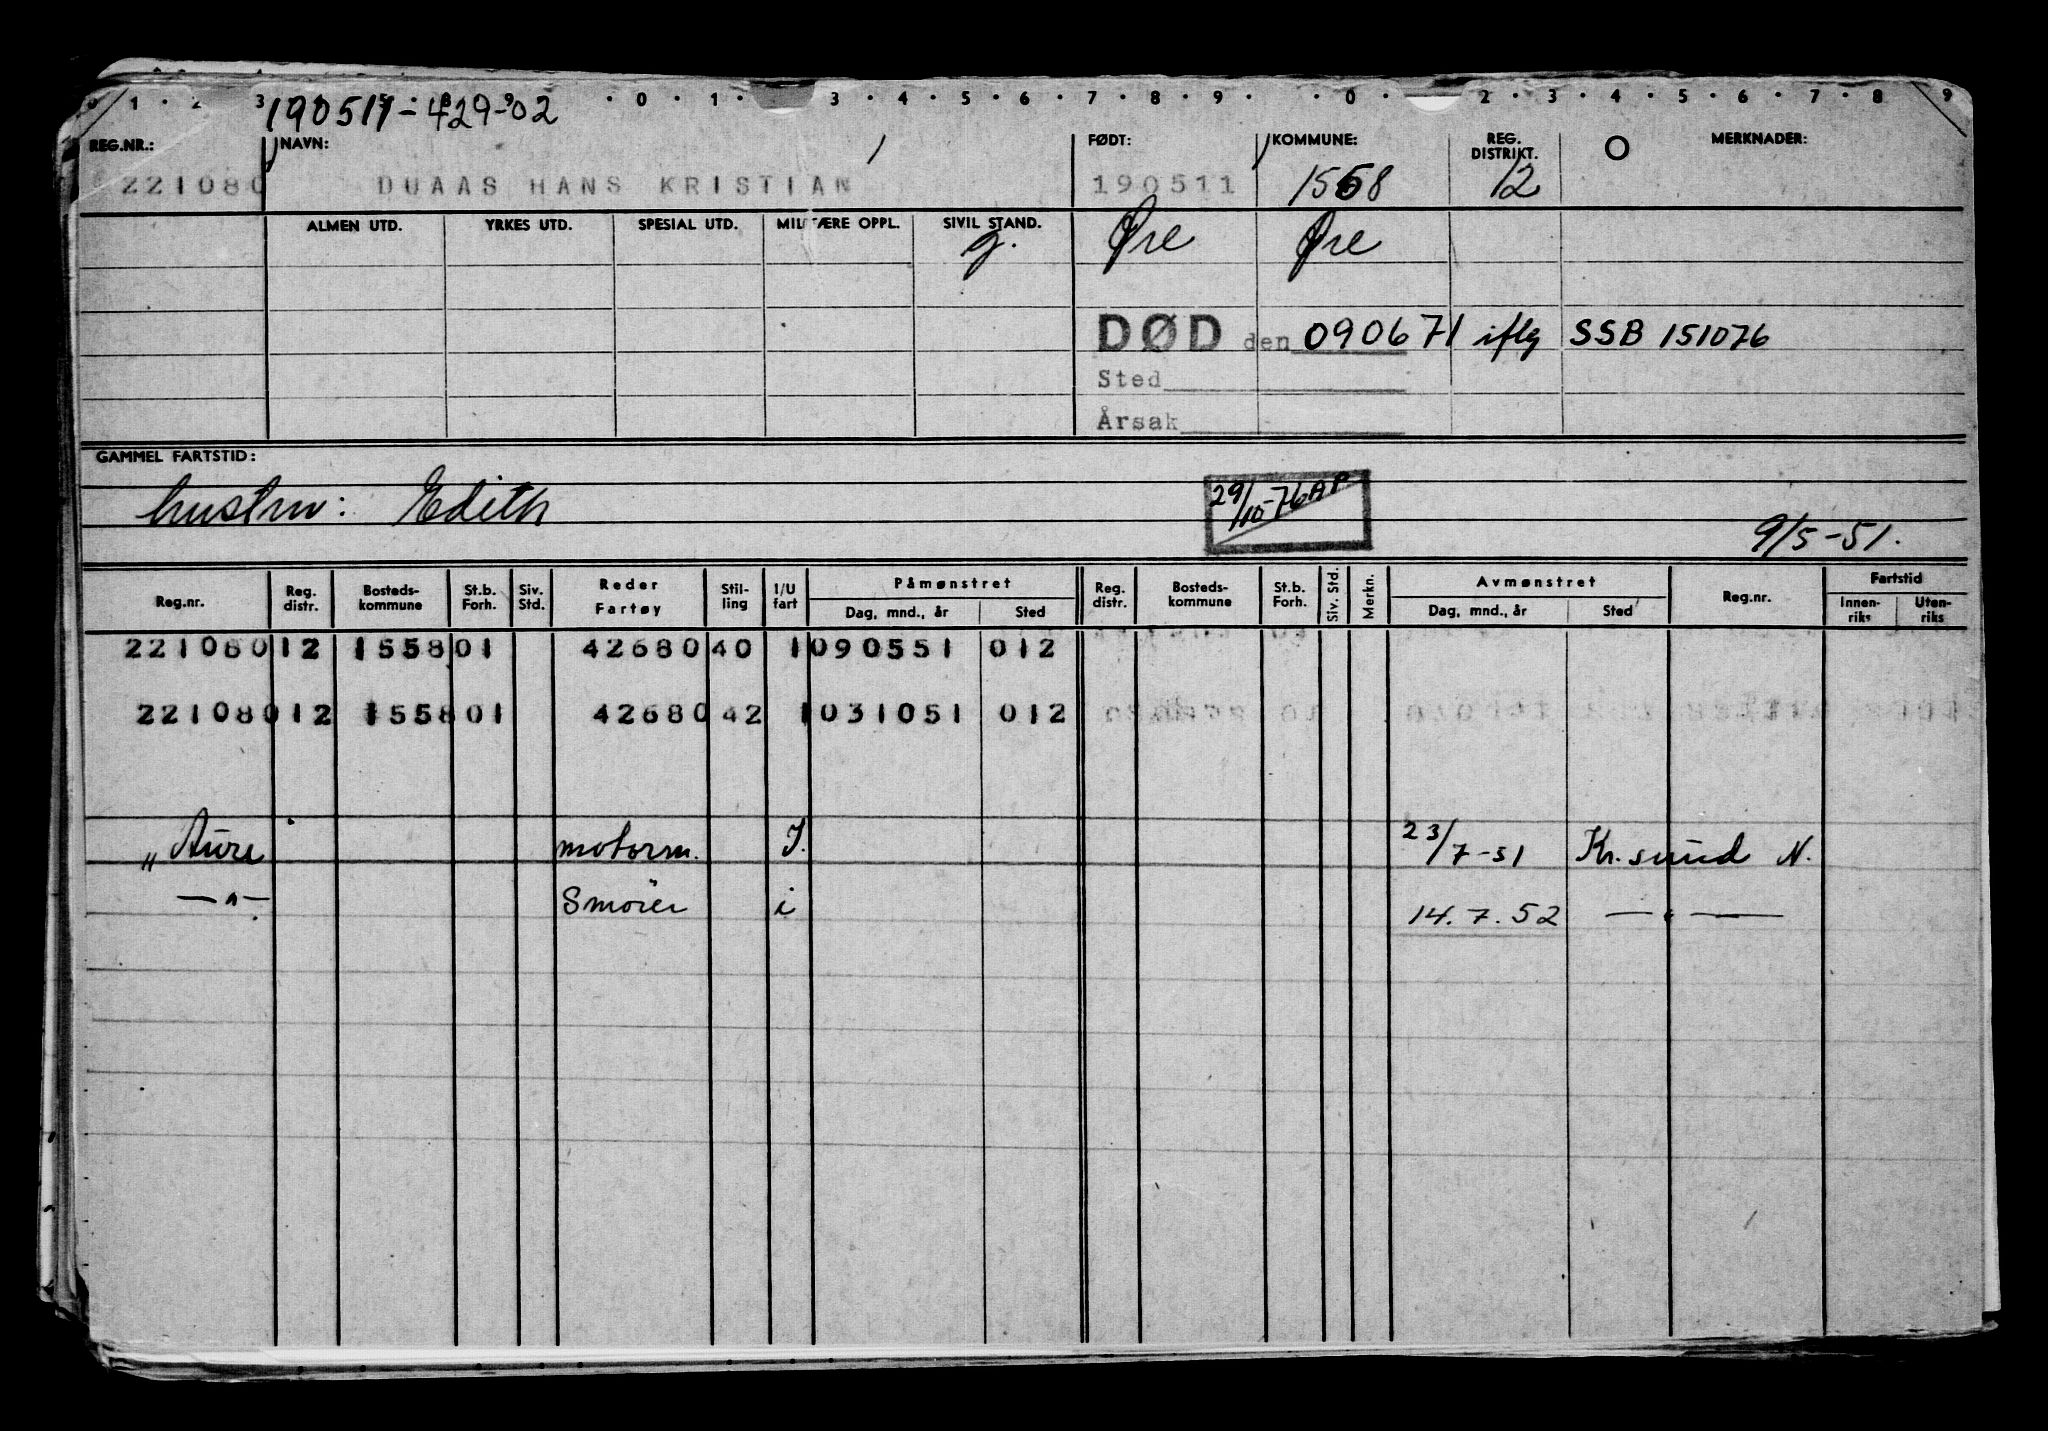 0 1 2 3 190511-42902 0 1 3 4 5 6 7 8 9 0 2 3 4 5 6 7 8 9
REG.NR.: NAVN: FØDT: KOMMUNE: REG. DISTRIKT. MERKNADER:
221080 DUAAS HANS KRISTIAN 190511 1558 12
ALMEN UTD. YRKES UTD. SPESIAL UTD. MILITÆRE OPPL. SIVIL STAND. g. Øre Øre
DØD den 090671 iflg SSB 151076
Sted
Årsak
GAMMEL FARTSTID:
hustru: Edith 29/10-76 AP
9/5-51.
Reg.nr. Reg. distr. Bosteds-kommune St.b. Forh. Siv. Std. Reder Fartøy Stil-ling I/U fart Påmønstret Dag, mnd., år Sted Reg. distr. Bosteds-kommune St.b. Forh. Siv. Std. Merkn. Avmønstret Dag, mnd., år Sted Reg.nr. Fartstid Innen-riks Uten-riks
221080 12 1558 01 42680 40 1 090551 012
221080 12 1558 01 42680 42 1 031051 012
„ Aure motorm. I. 23/7-51 Kr.sund N.
—"— Smører i 14.7.52 —"—